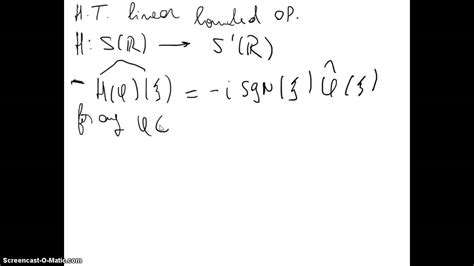 H.T. linear bounded op.
H: S(ℝ) → S'(ℝ)
- \widehat{H(φ)}(ξ) = -i sgn(ξ) \hat{φ}(ξ)
for any φ ∈
Screencast-O-Matic.com